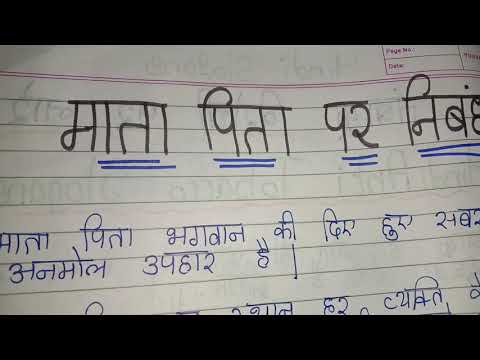 Page No.:
Date:
माता पिता पर निबंध
माता पिता भगवान की दिए हुए सबसे
अनमोल उपहार है |
स्थान हर व्यक्ति के